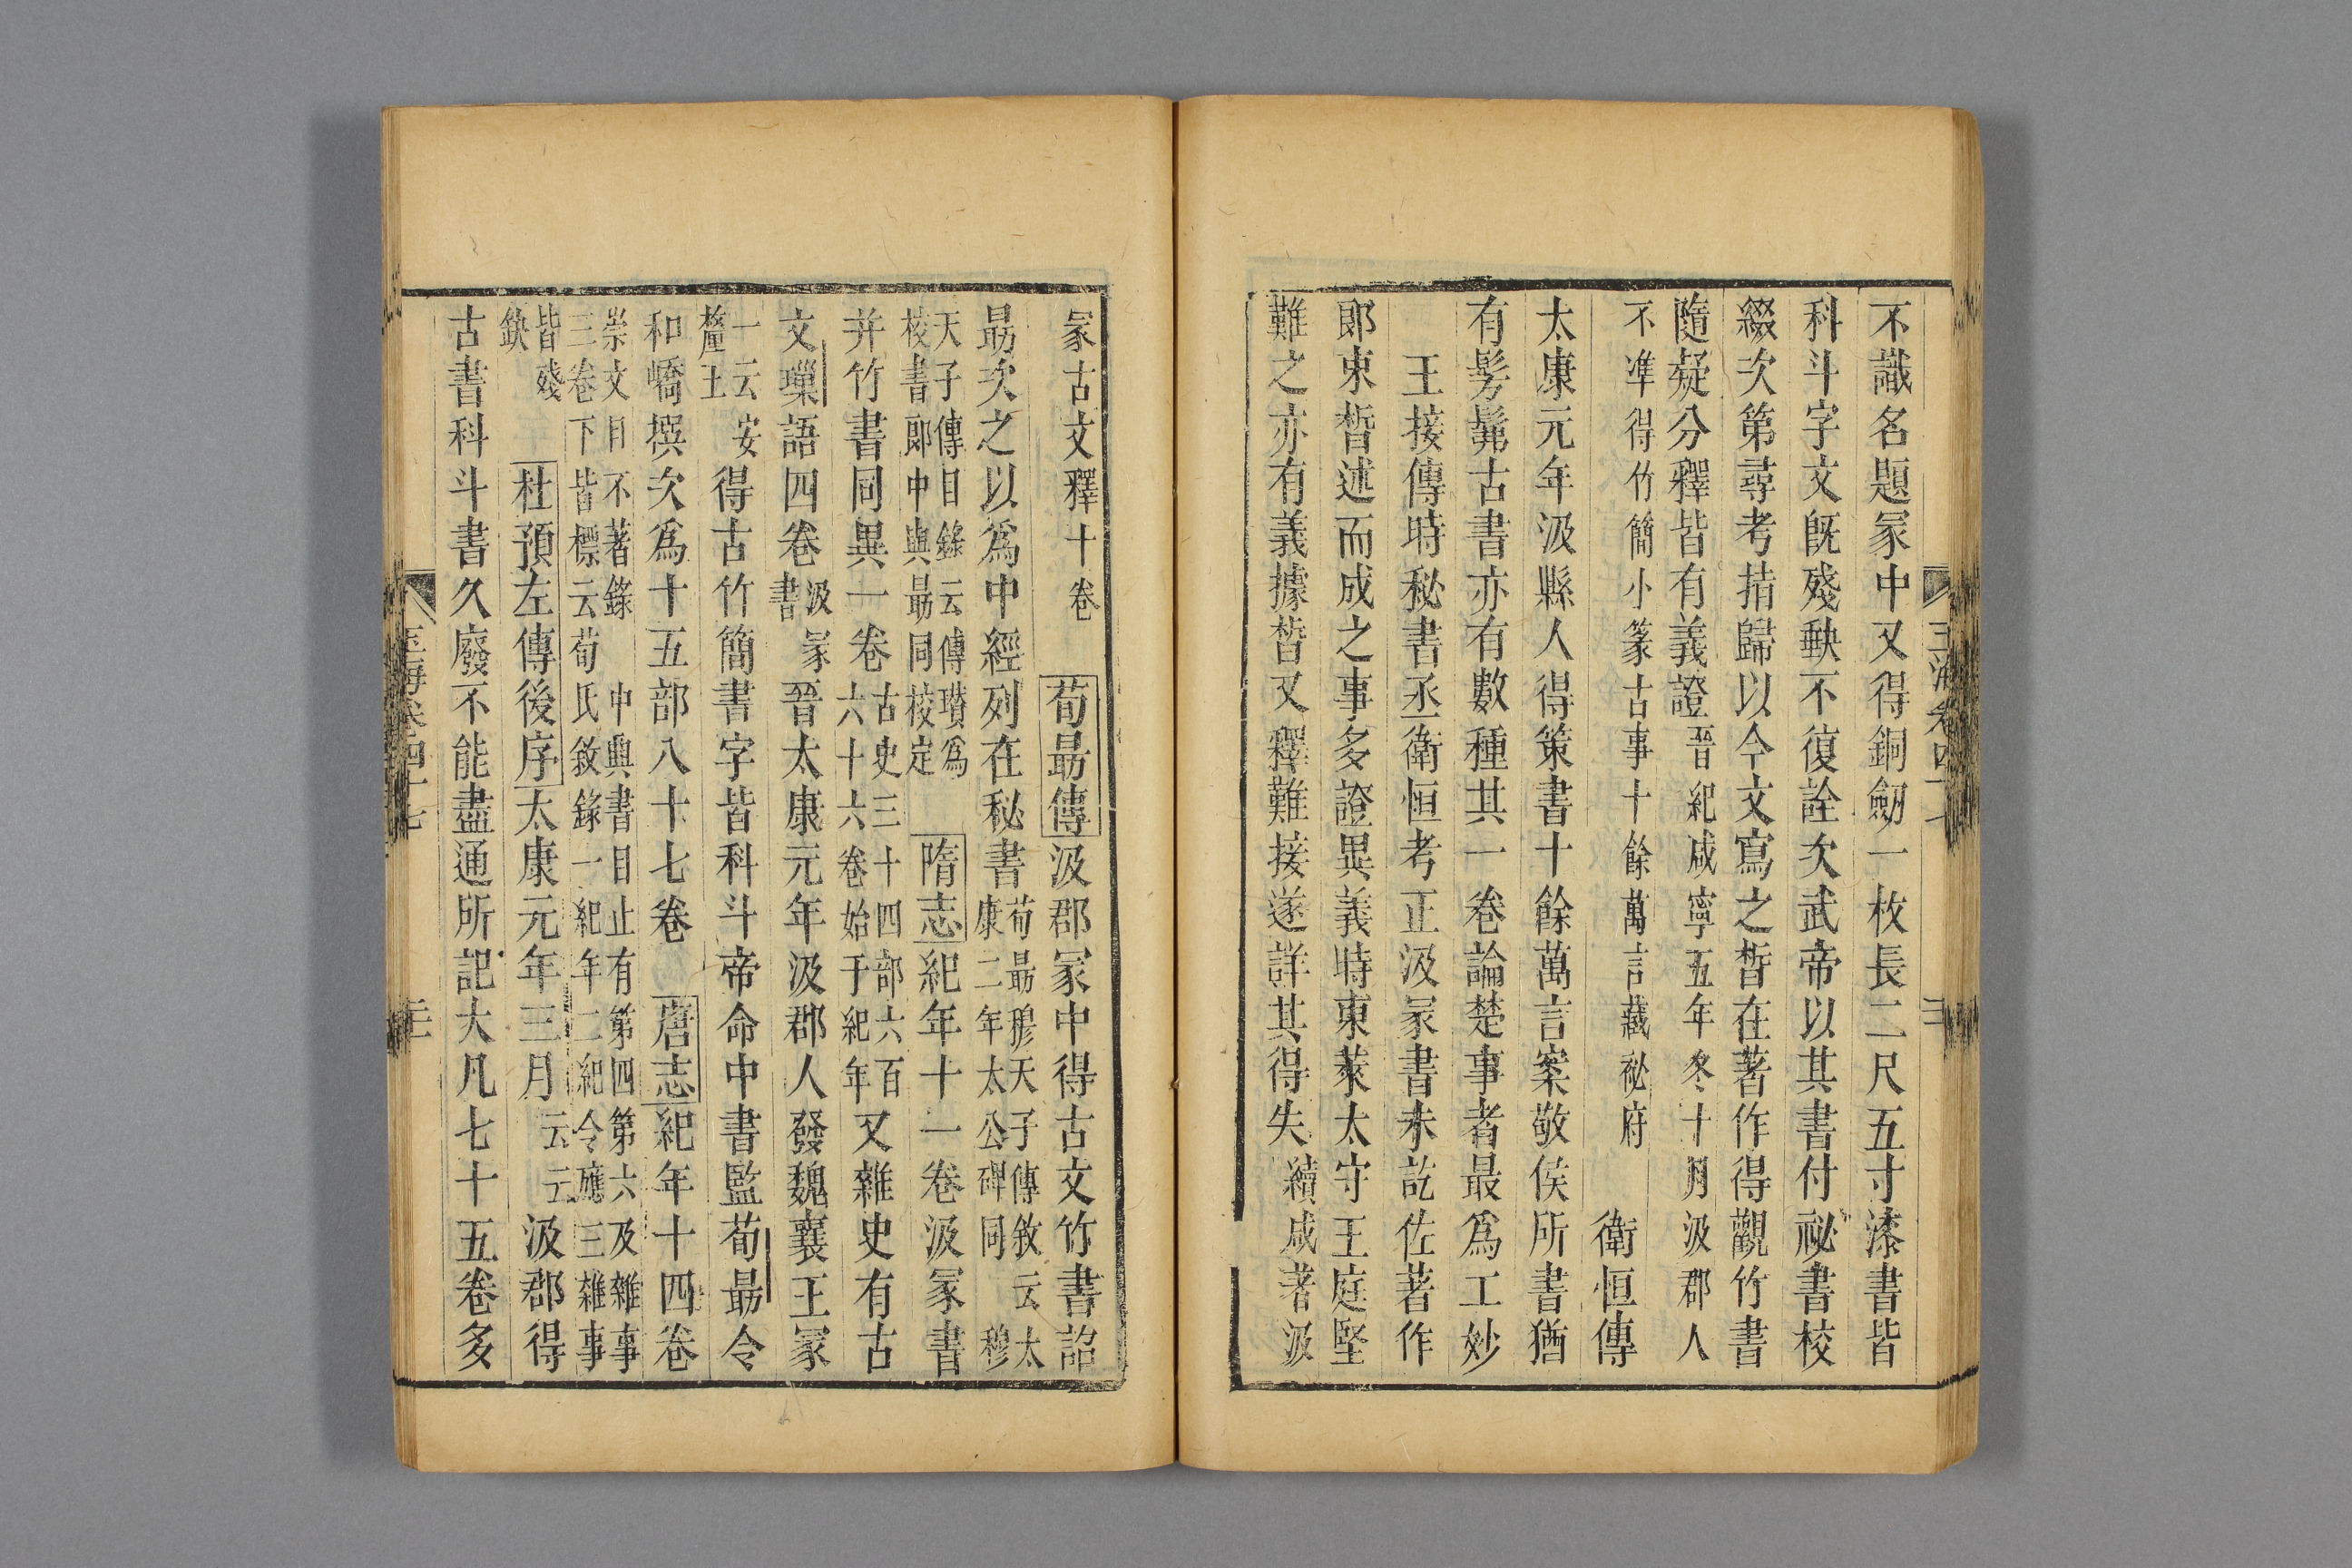 不識名題冢中又得銅劒一枚長二尺五寸漆書皆
科斗字文旣殘缺不復詮次武帝以其書付祕書校
綴次第尋考指歸以今文寫之晳在著作得觀竹書
隨疑分釋皆有義證晉紀咸寧五年冬十月汲郡人
不凖得竹簡小篆古事十餘萬言藏祕府 衛恒傳
太康元年汲縣人得策書十餘萬言案敬侯所書猶
有髣髴古書亦有數種其一卷論楚事者最爲工妙
王接傳時秘書丞衛恒考正汲冢書未訖佐著作
郎束晳述而成之事多證異義時東萊太守王庭堅
難之亦有義據晳又釋難接遂詳其得失續咸著汲
冢古文釋十卷 荀朂傳汲郡冢中得古文竹書詔
朂次之以爲中經列在秘書荀朂穆天子傳敘云太
康二年太公碑同 穆
天子傳目錄云傳瓚爲
校書郎中與朂同校定 隋志紀年十一卷汲冢書
并竹書同異一卷古史三十四部六百
六十六卷始于紀年又雜史有古
文璅語四卷汲冢
書 晉太康元年汲郡人發魏襄王冢
一云云安
釐王 得古竹簡書字皆科斗帝命中書監荀朂令
和嶠撰次爲十五部八十七卷 唐志紀年十四卷
崇文目不著錄 中興書目止有第四第六及雜事
三卷下皆標云荀氏敘錄一紀年二紀令應三雜事
皆殘
缺 杜預左傳後序太康元年三月云云汲郡得
古書科斗書久廢不能盡通所記大凡七十五卷多
玉海卷四十七